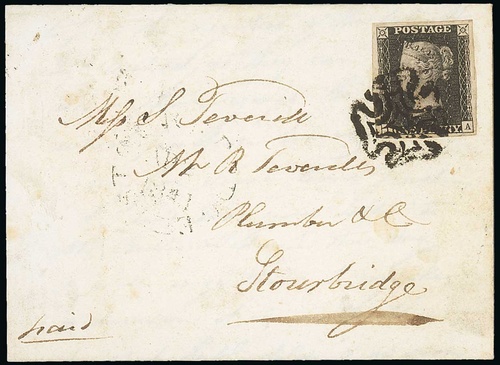 POSTAGE
A
Miss S Teverde
Mr R Teverdes
Plumber & Co
Stourbridge
paid